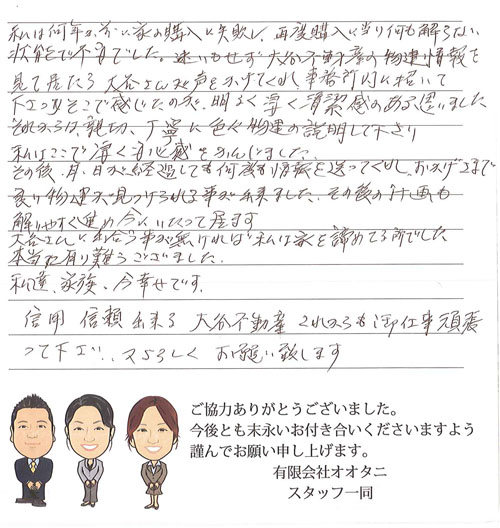 私は何年か前に家の購入に失敗し、再度購入に当り何も解らない
状態で不安でした。迷いもせず大谷不動産の物建情報を
見て居たら大谷さんが声をかけてくれ、事務所内に招いて
下さりそこで感じたのが、明るく清潔感のある思いました
それからは、親切、丁寧に色々物建の説明して下さり
私はここで安心感をかんじました。
その後、月、日が経過しても何度も情報を送ってくれ、おかげさまで
良い物建が見つけられる事が出来ました。その後の計画も
解りやすく進め今にいたって居ます
大谷さんに出合う事が無ければ私は家を諦めてる所でした
本当に有り難うございました。
私達、家族、今幸せです。
信用 信頼出来る 大谷不動産 これからも御仕事頑張
って下さい、 よろしく お願い致します
ご協力ありがとうございました。
今後とも末永いお付き合いくださいますよう
謹んでお願い申し上げます。
有限会社オオタニ
スタッフ一同